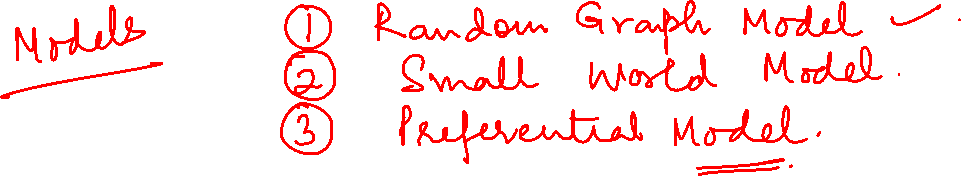 Models
① Random Graph Model ✓
② Small World Model.
③ Preferential Model.